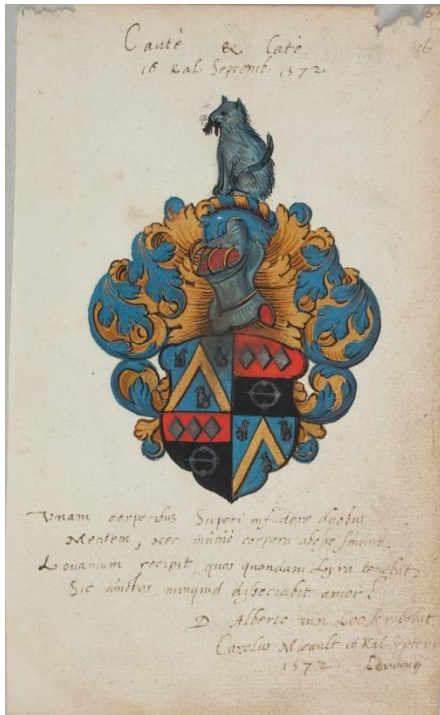 Cautè & Catè.
16 Kal. Septemb. 1572
Vnam corporibus Superi infudere duobus
Mentem, nec corpora abesse sinunt.
Louanium recipit quos quondam Lyra tenebat,
Sic iunctos nunquid dissociabit amor?
D Alberto van Loo scribebat
Carolus Micault 16 Kal. Septem
1572 Lovanij